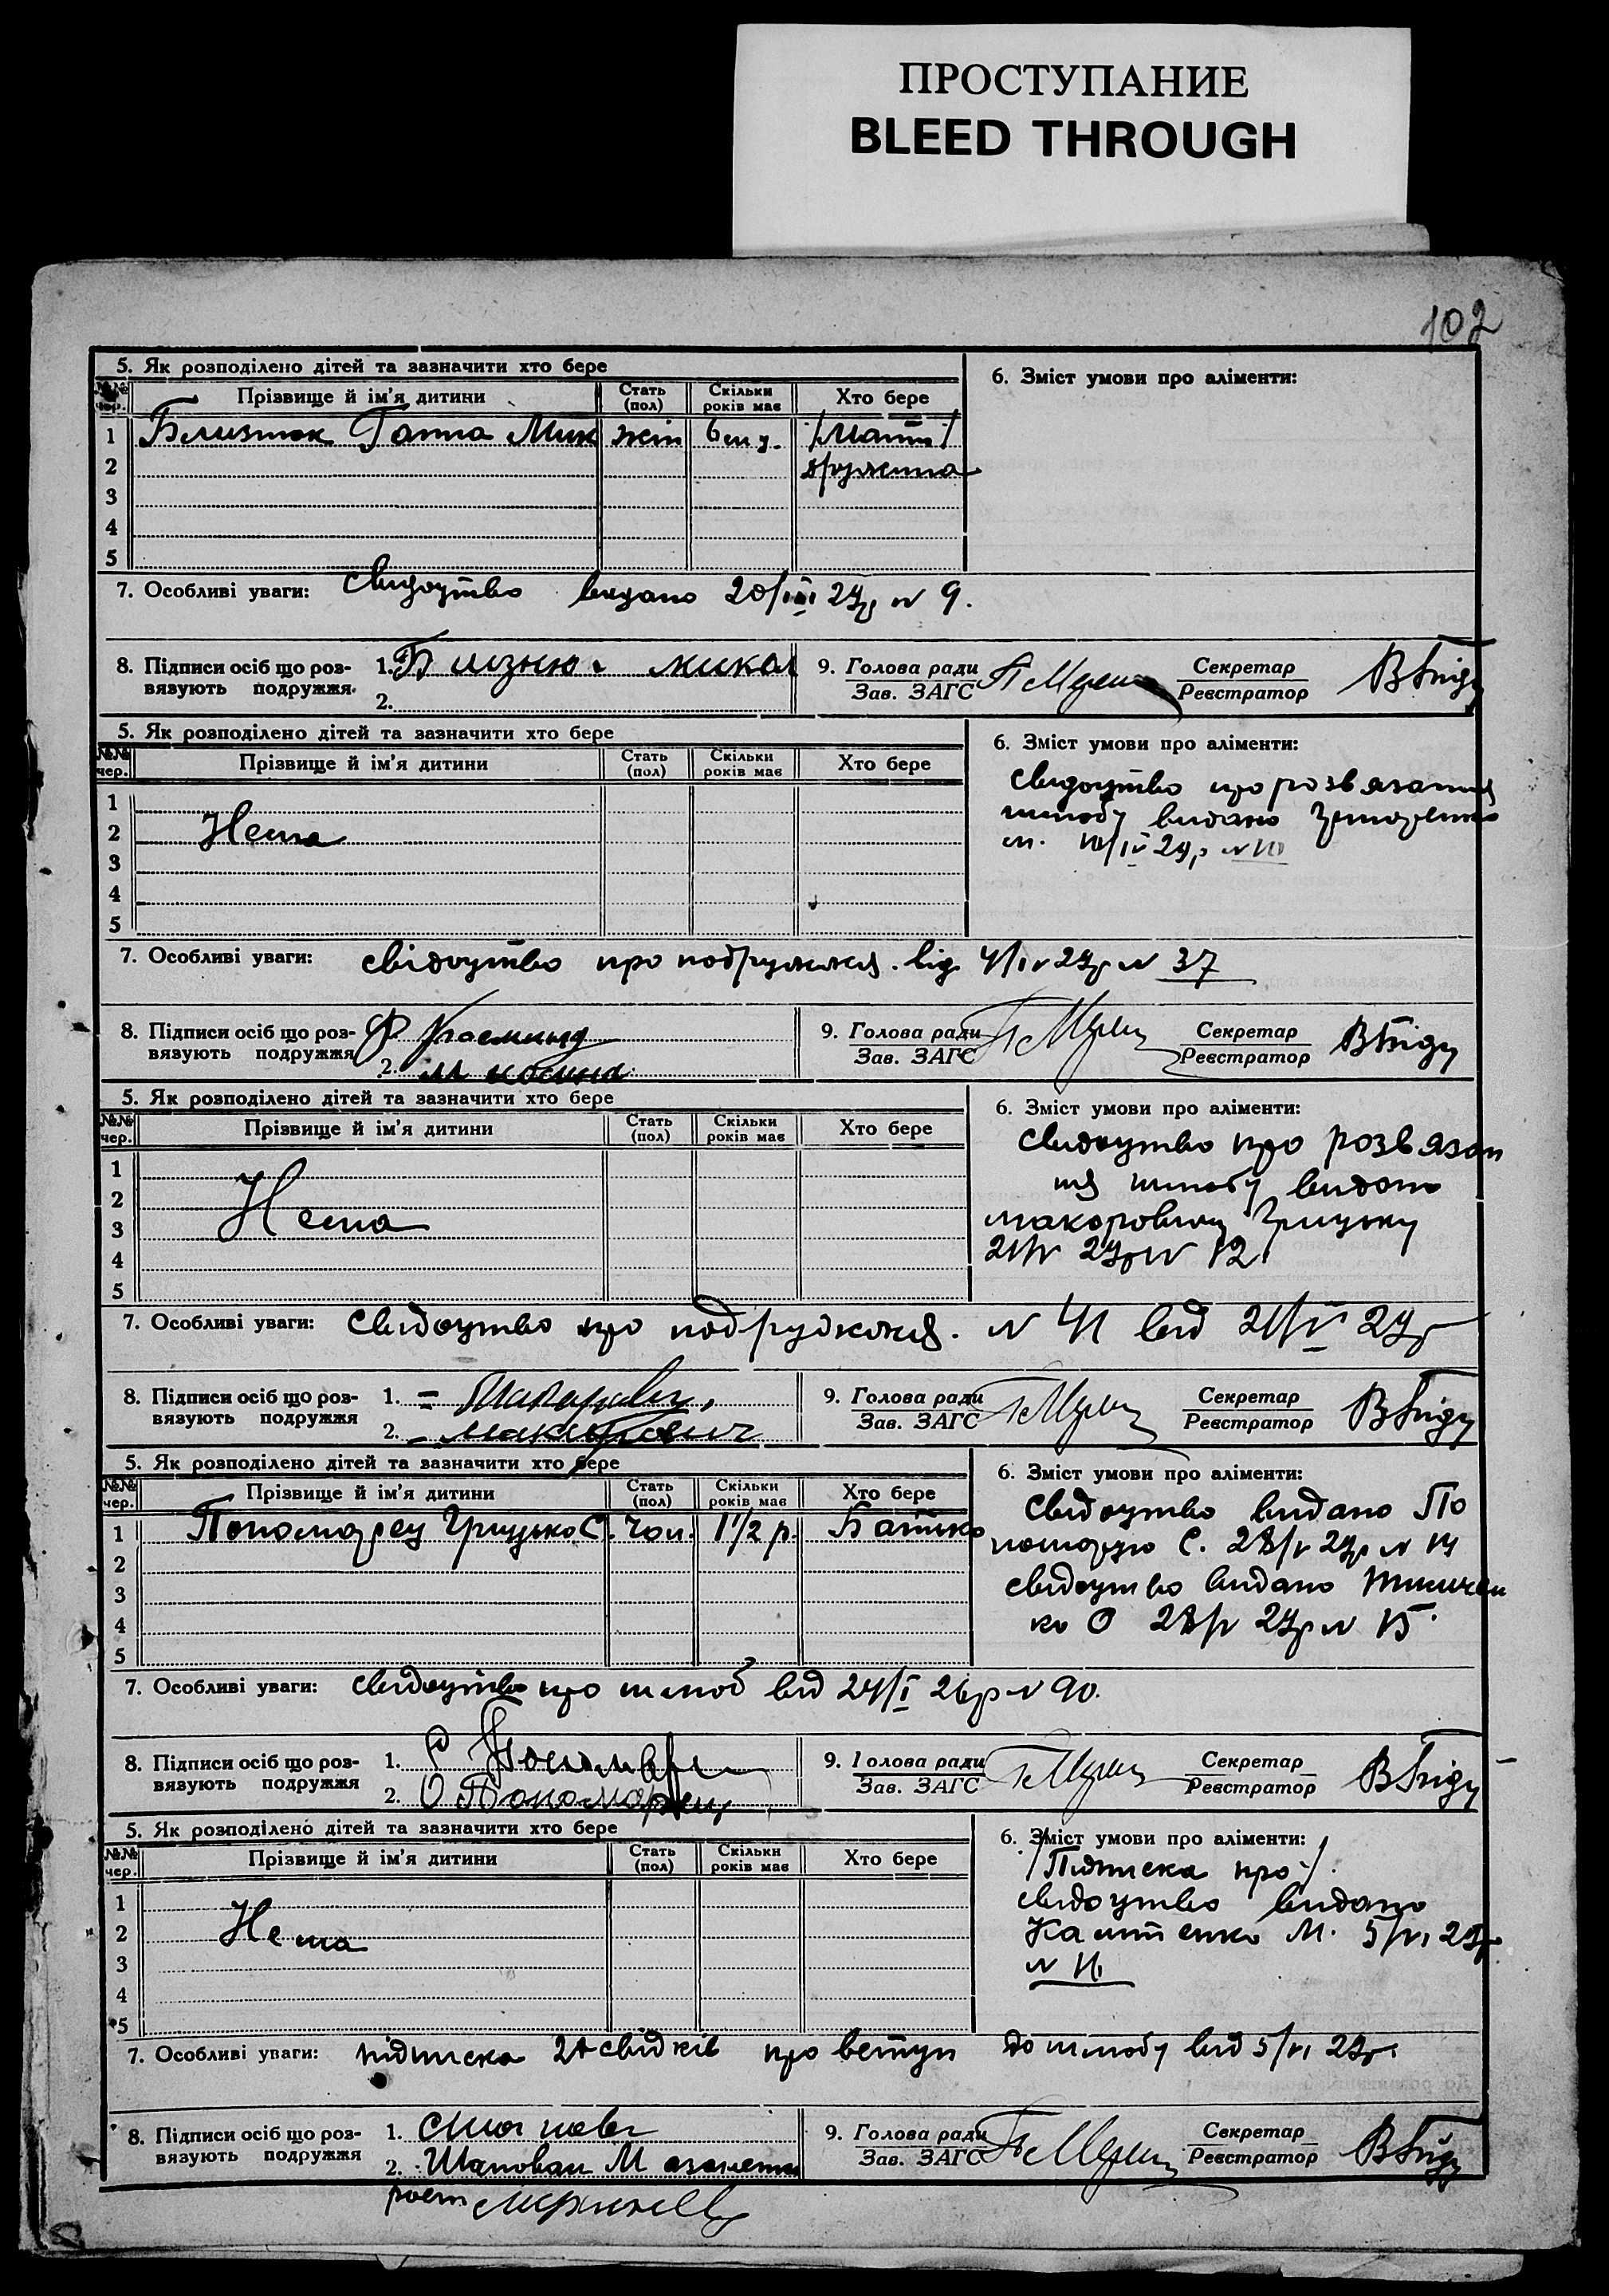 ПРОСТУПАНИЕ
BLEED THROUGH
102
5. Як розподілено дітей та зазначити хто бере
6. Зміст умови про аліменти:
№№ чер. Прізвище й ім'я дитини Стать (пол) Скільки років має Хто бере
1 Близнюк Ганна Мик жін 6 /мати/
2 дружина
3
4
5
7. Особливі уваги: свидоцтво видано 20/III 29р N 9.
8. Підписи осіб що роз-
вязують подружжя.
1. Близнюк микол
2.
9. Голова ради
Зав. ЗАГС
Секретар
Реєстратор
5. Як розподілено дітей та зазначити хто бере
6. Зміст умови про аліменти:
№№ чер. Прізвище й ім'я дитини Стать (пол) Скільки років має Хто бере
свидоцтво про розвязання
шлюбу видано
м. 10/IV 29р N 10
1
2 Нема
3
4
5
7. Особливі уваги: свідоцтво про подружжя. від 4/IV 29р N 37
8. Підписи осіб що роз-
вязують подружжя
2.
9. Голова ради
Зав. ЗАГС
Секретар
Реєстратор
5. Як розподілено дітей та зазначити хто бере
6. Зміст умови про аліменти:
№№ чер. Прізвище й ім'я дитини Стать (пол) Скільки років має Хто бере
свидоцтво про розвязан
ня шлюбу видано
макаровичу Грицьку
21/V 29р N 12
1
2
3 Нема
4
5
7. Особливі уваги: свидоцтво про подружжя. N 41 від 21/V 29р
8. Підписи осіб що роз-
вязують подружжя
1.
2. макарович
9. Голова ради
Зав. ЗАГС
Секретар
Реєстратор
5. Як розподілено дітей та зазначити хто бере
6. Зміст умови про аліменти:
№№ чер. Прізвище й ім'я дитини Стать (пол) Скільки років має Хто бере
1 Пономарец Грицько С. чол. 1 1/2 р. Батько
2
3
4
5
свидоцтво видано По
номарцю С. 28/V 29р N 14
свидоцтво видано
ко О 28/V 29р N 15.
7. Особливі уваги: свидоцтво про шлюб від 24/I 26р N 90.
8. Підписи осіб що роз-
вязують подружжя
1. С
2. О Пономарец
9. Голова ради
Зав. ЗАГС
Секретар
Реєстратор
5. Як розподілено дітей та зазначити хто бере
6. Зміст умови про аліменти:
№№ чер. Прізвище й ім'я дитини Стать (пол) Скільки років має Хто бере
/Підписка про/.
свидоцтво видано
М. 5/VI 29р
1
2 Нема
3
4
5
7. Особливі уваги: підписка 2х свідків про вступ до шлюбу від 5/VI 29р.
8. Підписи осіб що роз-
вязують подружжя
1.
2. Шаповал М
9. Голова ради
Зав. ЗАГС
Секретар
Реєстратор